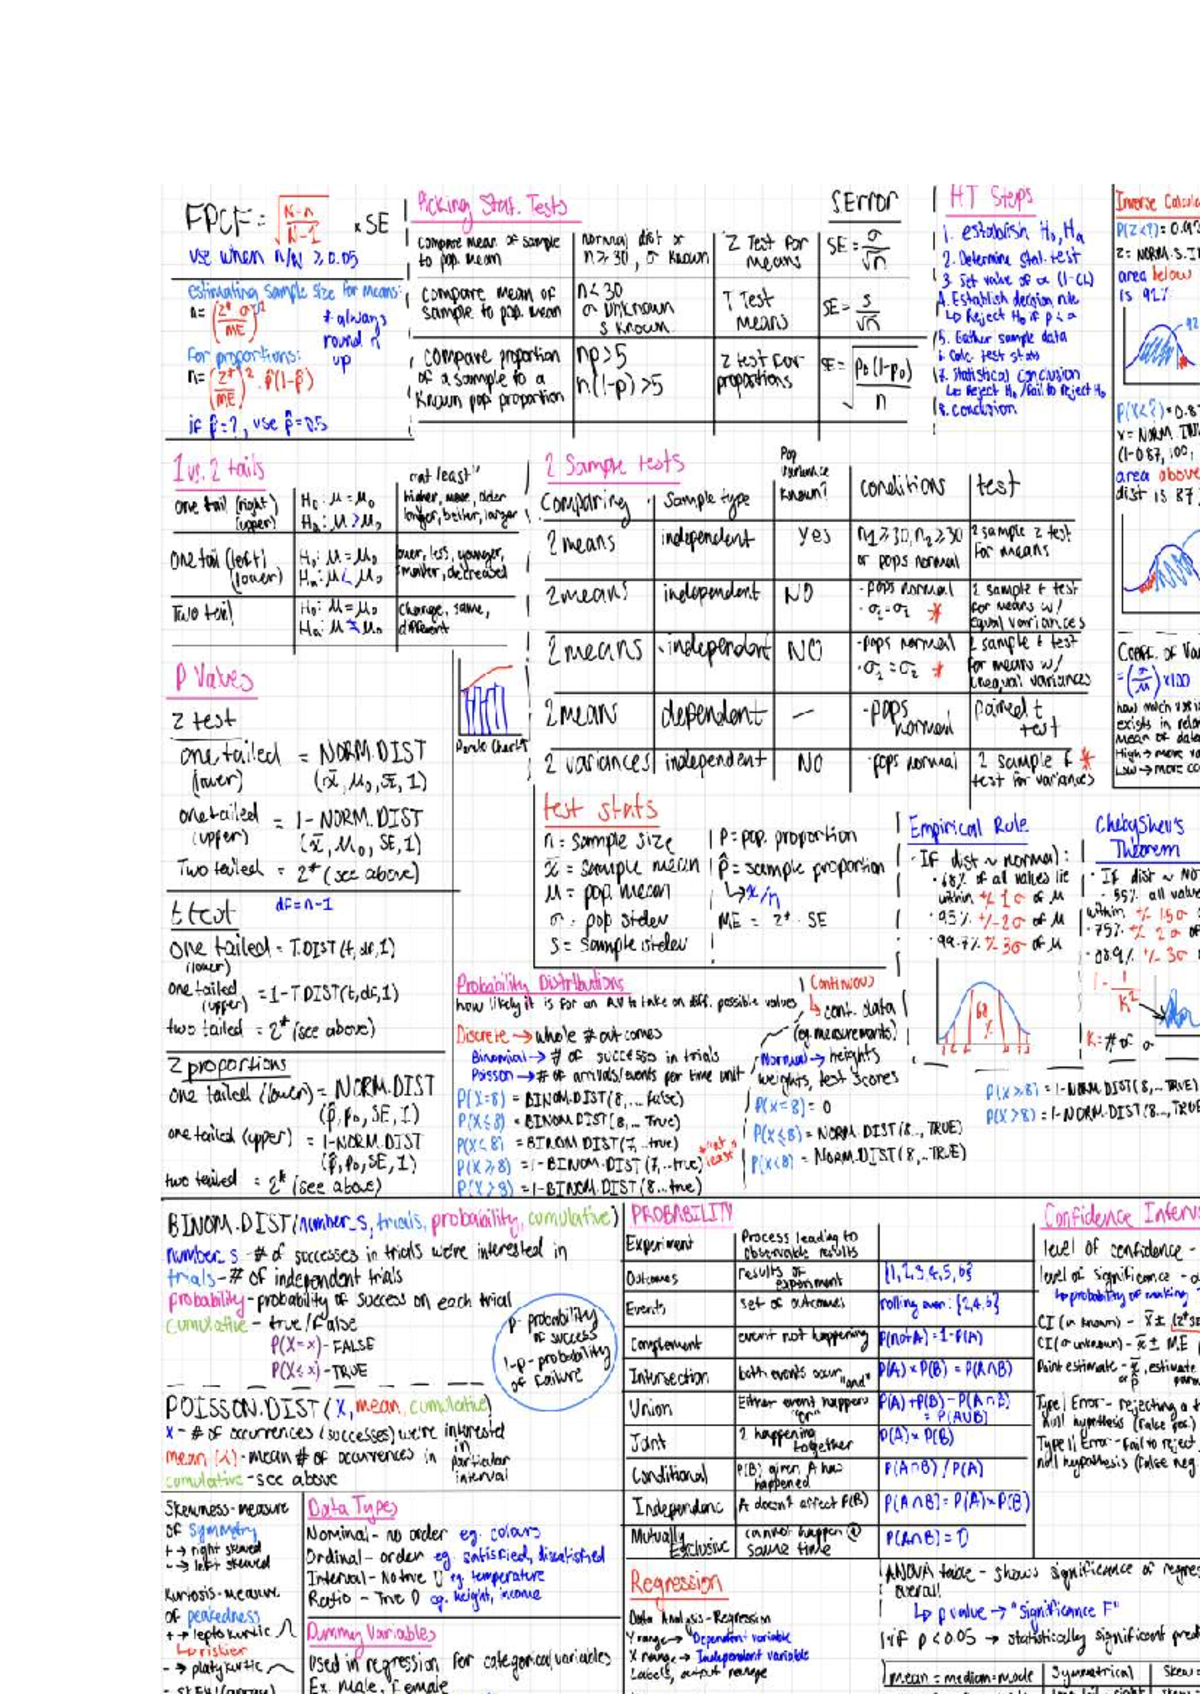 FPCF = √(N-n / N-1) × SE
use when n/N ≥ 0.05
estimating sample size for means:
n = (z* σ / ME)²
* always round n up
For proportions:
n = (z* / ME)² · p̂(1-p̂)
if p̂=?, use p̂=0.5
Picking Stat. Tests
SError
compare mean of sample to pop. mean
normal dist or n ≥ 30, σ known
Z Test for means
SE = σ/√n
compare mean of sample to pop. mean
n < 30 σ unknown s known
T Test means
SE = s/√n
compare proportion of a sample to a known pop proportion
np>5 n(1-p)>5
Z test for proportions
SE = √(p₀(1-p₀) / n)
HT Steps
1. establish H₀, Ha
2. Determine stat. test
3. Set value of α (1-CL)
4. Establish decision rule
↳ Reject H₀ if p < α
5. Gather sample data
6. Calc. test stats
7. Statistical conclusion
↳ Reject H₀ / Fail to Reject H₀
8. conclusion
Inverse Calcul
P(Z<?) = 0.92
Z = NORM.S.I
area below
is 92%
P(X<?) = 0.8
x = NORM. INV
(1-0.87, 100,
area above
dist is 87
1 vs. 2 tails
one tail (right) (upper)
H₀: μ = μ₀
Ha: μ > μ₀
"at least" higher, more, older longer, better, larger
one tail (left) (lower)
H₀: μ = μ₀
Ha: μ < μ₀
lower, less, younger, smaller, decreased
Two tail
H₀: μ = μ₀
Ha: μ ≠ μ₀
Change, same, different
2 Sample tests
Comparing
Sample type
Pop variance known?
conditions
test
2 means
independent
Yes
n₁≥30, n₂≥30 or pops normal
2 sample z test for means
2 means
independent
NO
·pops normal
·σ₁=σ₂ *
2 sample t test for means w/ equal variances
2 means
independent
NO
·pops normal
·σ₁=σ₂ *
2 sample t test for means w/ unequal variances
2 mean
dependent
—
·pops normal
paired t test
2 variances
independent
NO
·pops normal
2 sample F * test for variances
Pareto Chart
Coeff. of Va
= (σ/μ) ×100
how much vari
exists in rela
mean of data
High → more va
Low → more co
P Values
Z test
one tailed (lower) = NORM.DIST (x̄, μ₀, SE, 1)
one tailed (upper) = 1-NORM.DIST (x̄, μ₀, SE, 1)
Two tailed = 2* (see above)
t test
df=n-1
one tailed (lower) = T.DIST(t, df, 1)
one tailed (upper) = 1-T.DIST(t, df, 1)
two tailed = 2* (see above)
Z proportions
one tailed (lower) = NORM.DIST (p̂, p₀, SE, 1)
one tailed (upper) = 1-NORM.DIST (p̂, p₀, SE, 1)
two tailed = 2* (see above)
test stats
n = sample size
x̄ = sample mean
μ = pop. mean
σ = pop stdev
s = sample stdev
P = pop. proportion
p̂ = sample proportion
↳ x/n
ME = z* · SE
Empirical Rule
· IF dist ~ normal):
· 68% of all values lie
within +/- 1σ of μ
· 95% +/-2σ of μ
· 99.7% +/- 3σ of μ
68 %
Chebyshev's Theorem
· IF dist ~ NO
· 55% all value
within +/- 1.5σ
· 75% +/- 2σ of
· 88.9% +/- 3σ
1 - 1/K²
K = # of σ
Probability Distributions
how likely it is for an RV to take on diff. possible values
Discrete → whole # outcomes
Binomial → # of successes in trials
Poisson → # of arrivals/events per time unit
P(X=8) = BINOM.DIST(8,... false)
P(X≤8) = BINOM.DIST(8,... True)
P(X<8) = BINOM.DIST(7,... true)
P(X≥8) = 1-BINOM.DIST(7,...true)
P(X>8) = 1-BINOM.DIST(8...true)
*"at least"
Continuous
↳ cont. data
(eg. measurements)
Normal → heights
weights, test scores
P(X=8) = 0
P(X≤8) = NORM.DIST(8.., TRUE)
P(X<8) = NORM.DIST(8,..TRUE)
P(X≥8) = 1-NORM.DIST(8,.. TRUE)
P(X>8) = 1-NORM.DIST(8..., TRUE
BINOM.DIST(number_s, trials, probability, cumulative)
number_s - # of successes in trials we're interested in
trials - # of independent trials
probability - probability of success on each trial
cumulative - true/false
P(X=x) - FALSE
P(X≤x) - TRUE
p - probability of success
1-p - probability of failure
POISSON.DIST(x, mean, cumulative)
x - # of occurrences (successes) we're interested in
mean (λ) - mean # of occurrences in particular interval
cumulative - see above
PROBABILITY
Experiment
Process leading to observable results
Outcomes
results of experiment
{1,2,3,4,5,6}
Events
set of outcomes
rolling even: {2,4,6}
Complement
event not happening
P(not A) = 1-P(A)
Intersection
both events occur "and"
P(A) × P(B) = P(A∩B)
Union
Either event happens "or"
P(A)+P(B) - P(A∩B) = P(A∪B)
Joint
2 happening together
P(A) × P(B)
Conditional
P(B) given A has happened
P(A∩B) / P(A)
Independenc
A doesn't affect P(B)
P(A∩B) = P(A)×P(B)
Mutually Exclusive
cannot happen @ same time
P(A∩B) = 0
Confidence Interv
level of confidence -
level of significance -
↳ probability of making
CI (σ known) - x̄ ±
CI (σ unknown) - x̄ ± M.E
Point estimate - x̄ or p̄, estimate
Type I Error - rejecting a t
null hypothesis (False pos)
Type II Error - Fail to reject
null hypothesis (false neg
Skewness - measure
of symmetry
+ → right skewed
- → left skewed
Kurtosis - measure
of peakedness
+ → leptokurtic
↳ riskier
- → platykurtic
Data Types
Nominal - no order eg. colours
Ordinal - order eg. satisfied, dissatisfied
Interval - No true 0 eg. temperature
Ratio - True 0 eg. height, income
Dummy Variables
Used in regression for categorical variables
Ex. male, female
Regression
Data Analysis - Regression
Y range → Dependent variable
X range → Independent variable
Labels, output range
ANOVA table - shows significance of regre
overall
↳ p value → "Significance F"
if p < 0.05 → statistically significant pred
mean = median = mode
Symmetrical
Skew